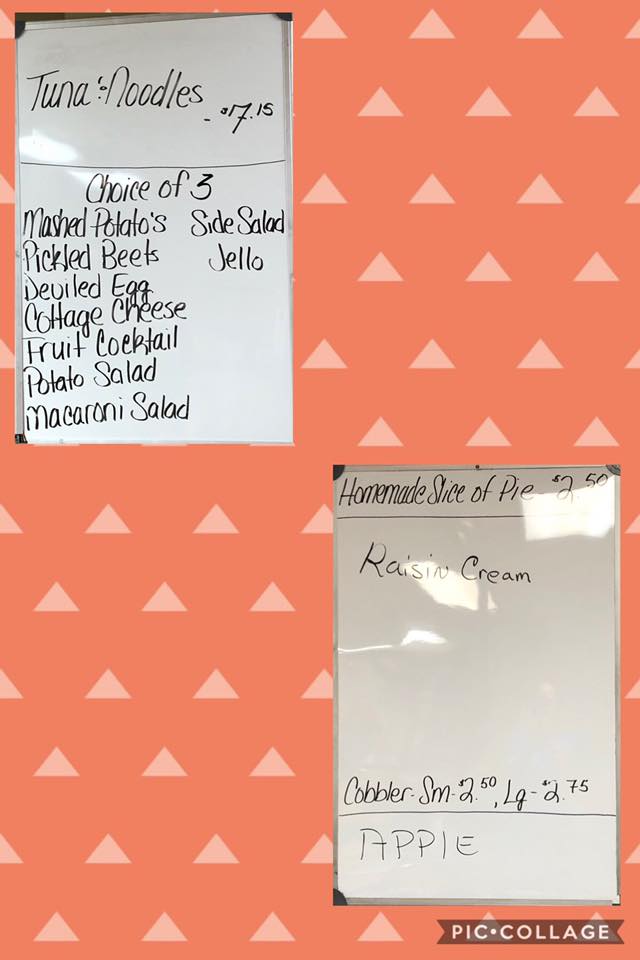 Tuna & Noodles
- $7.15
Choice of 3
Mashed Potato's Side Salad
Pickled Beets Jello
Deviled Egg
Cottage Cheese
Fruit Cocktail
Potato Salad
Macaroni Salad
Homemade Slice of Pie - $2.50
Raisin Cream
Cobbler - Sm - $2.50, Lg - $2.75
APPlE
PIC•COLLAGE